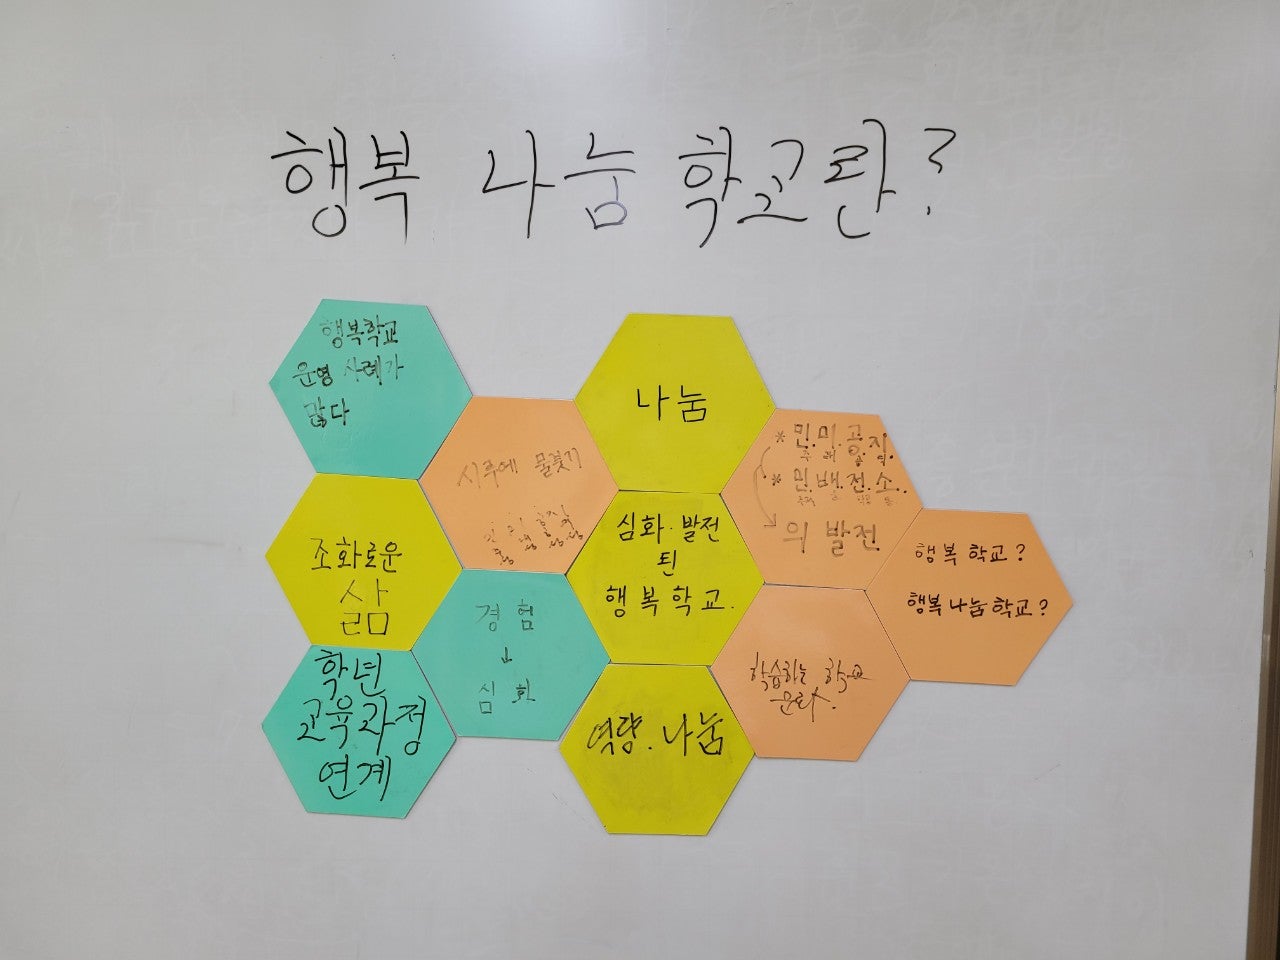 행복 나눔 학교란?
행복학교
운영 사례가
많다
나눔
시루에 물붓기
* 민.미.공.지.
* 민.배.전.소.
의 발전
조화로운
삶
심화·발전
된
행복학교.
행복 학교?
행복나눔학교?
경험
↓
심화
학년
교육과정
연계
학습하는 학교
문화.
역량.나눔